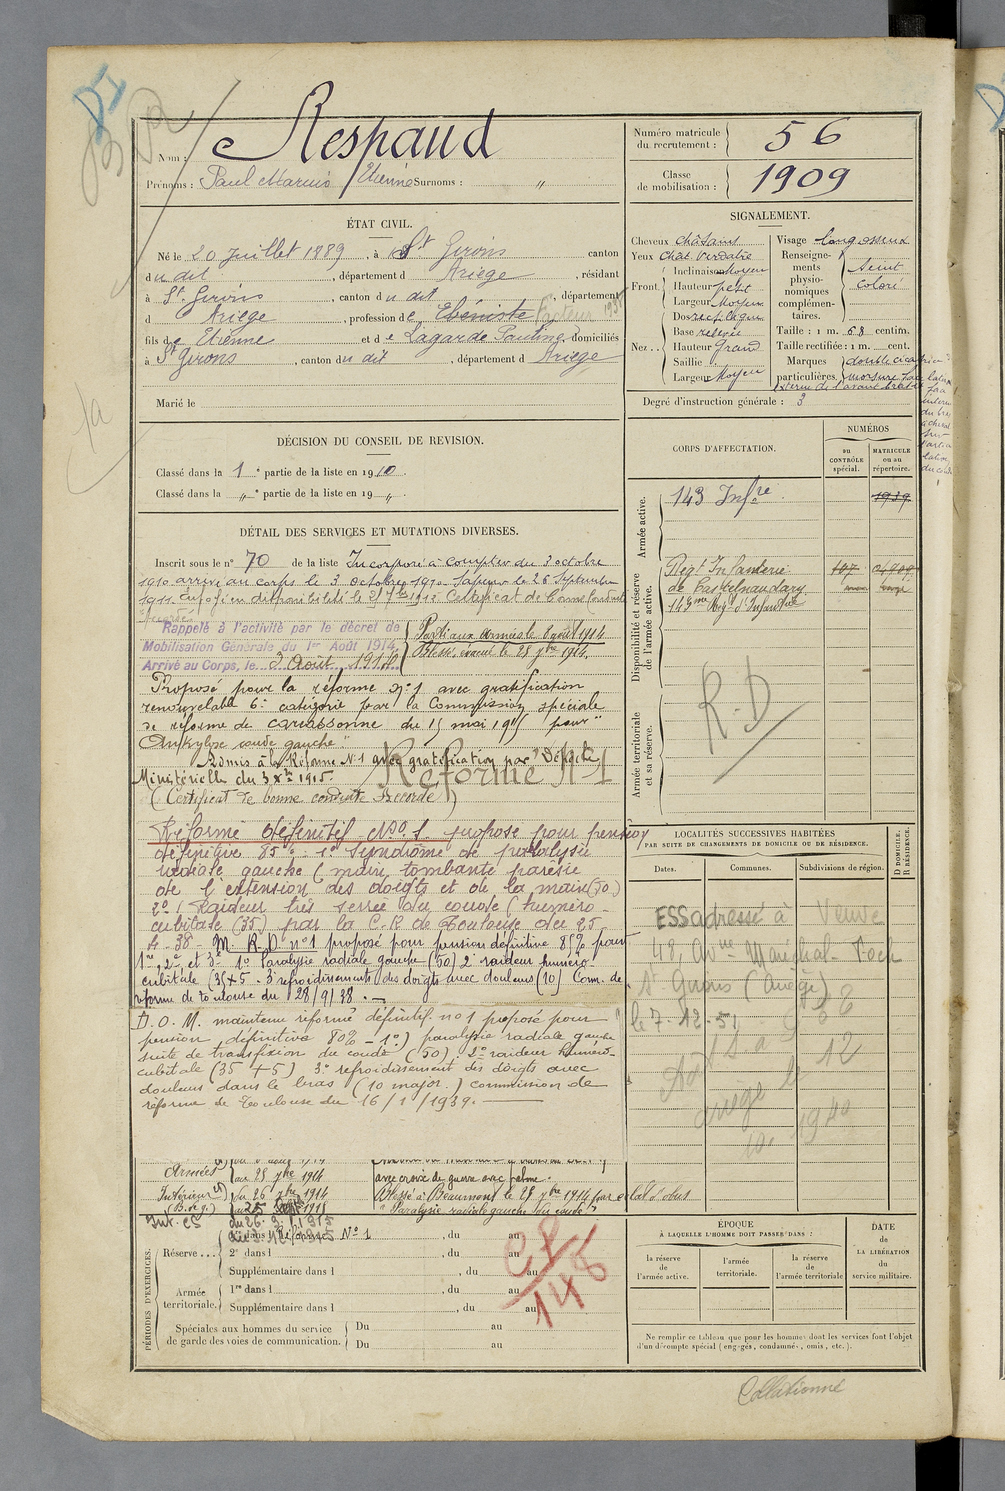 Nom : Respaud
Prénoms : Paul Marius Etienne Surnoms : "
Numéro matricule du recrutement : 56
Classe de mobilisation : 1909
ÉTAT CIVIL.
Né le 20 Juillet 1889, à St Girons canton
du dit, département d Ariège, résidant
à St Girons, canton du dit, département
d Ariège, profession de Ebéniste
fils de Etienne et de Lagarde Pauline domiciliés
à St Girons, canton du dit, département d Ariège
Marié le
DÉCISION DU CONSEIL DE REVISION.
Classé dans la 1e partie de la liste en 1910.
Classé dans la "e partie de la liste en 19 „.
DÉTAIL DES SERVICES ET MUTATIONS DIVERSES.
Inscrit sous le no 70 de la liste Incorporé à compter du 3 octobre
1910 arrivé au corps le 3 octobre 1910 Sapeur le 26 Septembre
1911. Envoyé en disponibilité le 27 7bre 1912 Certificat de bonne conduite
accordé.
Rappelé à l'activité par le décret de
Mobilisation Générale du 1er Août 1914.
Arrivé au Corps, le 3 Août 1914
Parti aux armées le 8 août 1914
Blessé, évacué le 28 1914.
Proposé pour la réforme no 1 avec gratification
renouvelable 6e catégorie par la Commission spéciale
de réforme de Carcassonne du 15 mai 1915 pour "
Ankylose coude gauche"
Admis à la Réforme No 1 avec gratification par Dépêche
Ministérielle du 3 1915.
Réformé No 1
(Certificat de bonne conduite Accordé)
Réformé définitif No 1. proposé pour pension
définitive 85% 1o Syndrome de paralysie
radiale gauche (main tombante parésie
de l'extension des doigts et de la main (50)
2o) Raideur très serrée du coude (huméro-
cubitale (35) par la C. R de Toulouse du 25
4-38 - M. R. D. no 1 proposé pour pension définitive 85% pour
1o Paralysie radiale gauche (50) 2o raideur huméro
cubitale (35+5 - 3o refroidissement des doigts avec douleurs (10) Com. de
réforme de toulouse du 28/9/38. -
D. O. M. maintenu réformé définitif no 1 proposé pour
pension définitive 80% - 1o) paralysie radiale gauche
suite de transfixion du coude (50) 2o raideur huméro-
cubitale (35 + 5) 3o refroidissement des doigts avec
douleurs dans le bras (10 major.) commission de
réforme de Toulouse du 16/1/1939.
Armées au 28 1914
avec croix de guerre avec palme.
Intérieur du 26 1914
Blessé à Beaumont le 28 1914 par éclat d'obus
"Paralysie radiale gauche du coude"
PÉRIODES D'EXERCICES.
Réserve ... 1re dans l Réforme No 1, du au
2e dans l, du au
Supplémentaire dans l, du au
Armée territoriale. 1re dans l, du au
Supplémentaire dans l, du au
Spéciales aux hommes du service de garde des voies de communication. Du au
Du au
CP
148
SIGNALEMENT.
Cheveux châtains
Yeux Chat. verdâtre
Front. Inclinaison Moyen
Hauteur petit
Largeur Moyen
Nez .. Dos rectiligne
Base relevée
Hauteur Grand
Saillie
Largeur Moyen
Visage long osseux
Renseignements physionomiques complémentaires. Teint coloré
Taille : 1 m. 68 centim.
Taille rectifiée : 1 m. cent.
Marques particulières. double
Degré d'instruction générale : 3
CORPS D'AFFECTATION.
NUMÉROS
au CONTRÔLE spécial.
MATRICULE ou au répertoire.
Armée active.
143 Infre
1939
Disponibilité et réserve de l'armée active.
Regt Infanterie
de Castelnaudary
143me Regt d'Infanterie
Armée territoriale et sa réserve.
R. D
LOCALITÉS SUCCESSIVES HABITÉES
PAR SUITE DE CHANGEMENTS DE DOMICILE OU DE RÉSIDENCE.
Dates. Communes. Subdivisions de région. D DOMICILE. R RÉSIDENCE.
ESS adressé à Veuve
48, Avnue Maréchal Foch
St Girons (Ariège)
le 7-12-51
ÉPOQUE
À LAQUELLE L'HOMME DOIT PASSER DANS :
la réserve de l'armée active.
l'armée territoriale.
la réserve de l'armée territoriale
DATE de LA LIBÉRATION du service militaire.
Ne remplir ce tableau que pour les hommes dont les services font l'objet
d'un décompte spécial (engagés, condamnés, omis, etc.).
Collationné